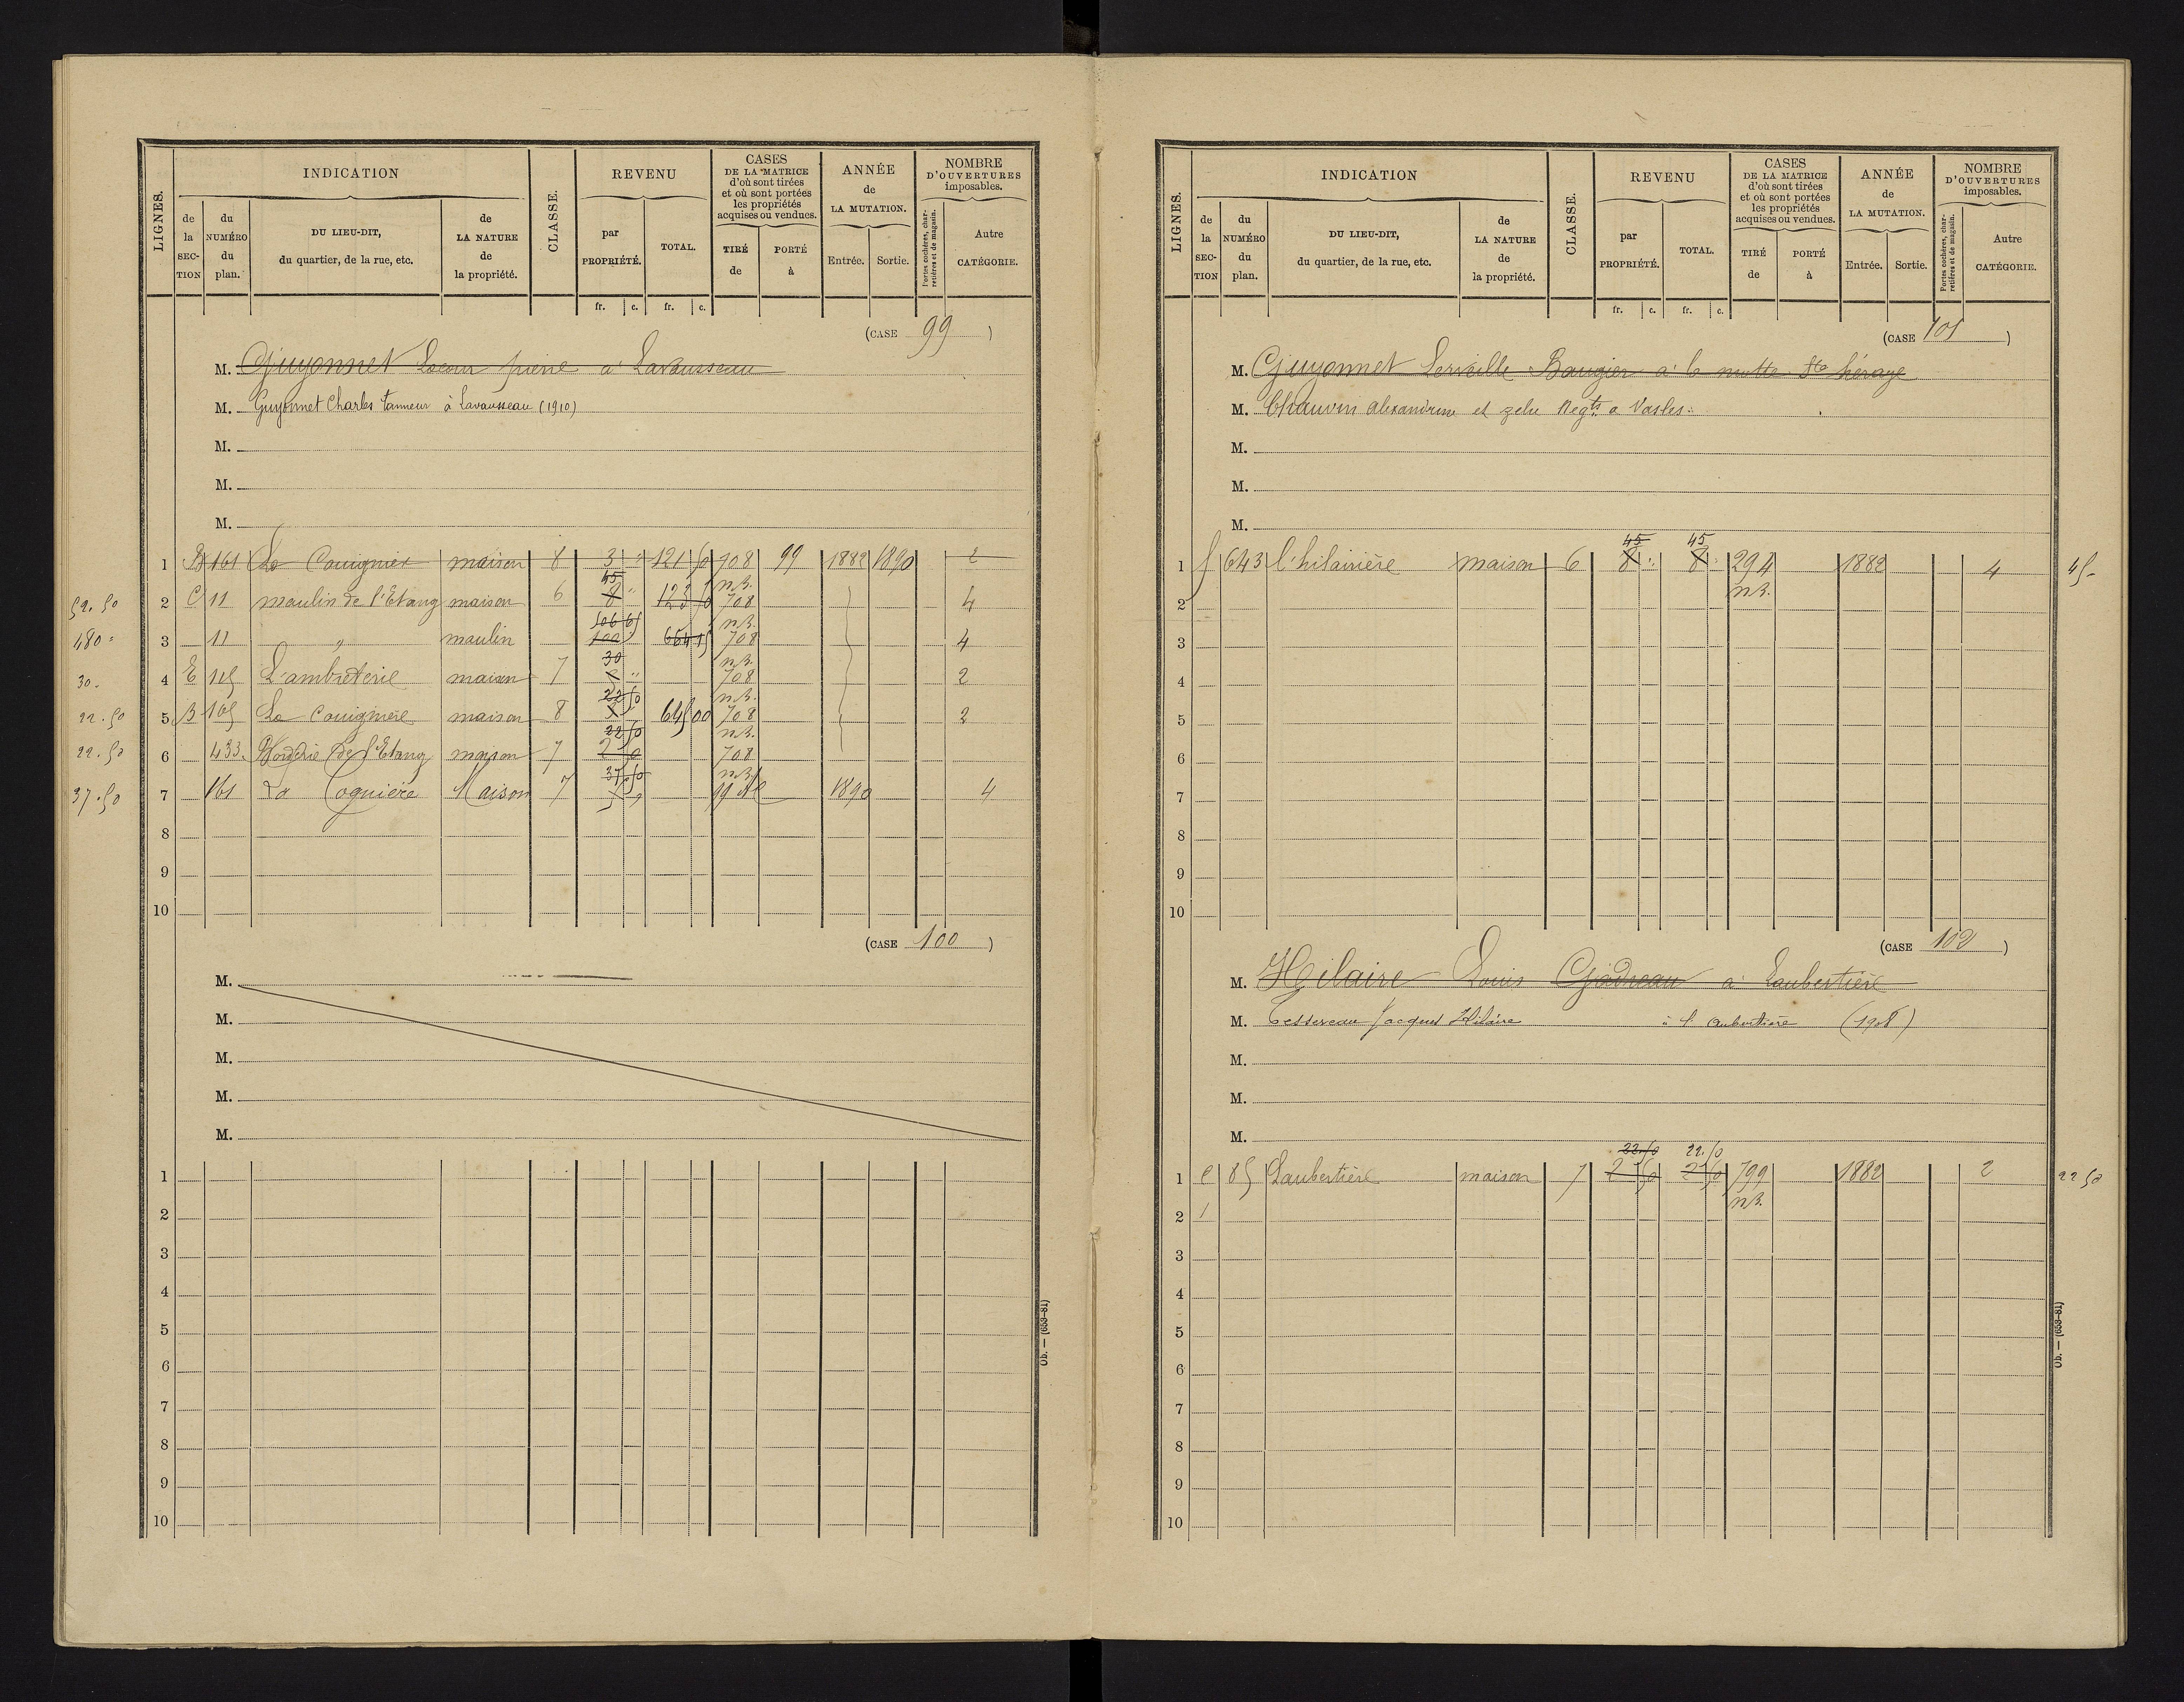 LIGNES. INDICATION CLASSE. REVENU CASES DE LA MATRICE d'où sont tirées et où sont portées les propriétés acquises ou vendues. ANNÉE de LA MUTATION. NOMBRE D'OUVERTURES imposables.
de la SECTION du NUMÉRO du plan. DU LIEU-DIT, du quartier, de la rue, etc. de LA NATURE de la propriété. par PROPRIÉTÉ. TOTAL. TIRÉ de PORTÉ à Entrée. Sortie. Portes cochères, charretières et de magasin. Autre CATÉGORIE.
fr. c. fr. c.
(CASE 99)
M. Guyonnet Lacour pierre à Lavausseau
M. Guyonnet Charles tanneur à Lavausseau (1910)
M.
M.
M.
1 B 161 La Couignier maison 8 3 " 121 50 708 99 1882 1890 2
45 n.B.
52.50 2 C 11 moulin de l'Etang maison 6 8 " 123 50 708 4
106 65 n.B.
480 " 3 11 " moulin 100 " 664 15 708 4
30 n.B.
30 - 4 E 115 L'ambreterie maison 7 5 " 708 2
22 50 n.B.
22.50 5 B 165 La Couignière maison 8 3 645 00 708 2
22 50 n.B.
22.50 6 433 Borderie de l'Etang maison 7 2 50 708
37 50 n.B.
37.50 7 161 La Cognière Maison 7 5 " 99 1890 4
8
9
10
(CASE 100)
M.
M.
M.
M.
M.
1
2
3
4
5
6
7
8
9
10
Ob. — (653-81)
LIGNES. INDICATION CLASSE. REVENU CASES DE LA MATRICE d'où sont tirées et où sont portées les propriétés acquises ou vendues. ANNÉE de LA MUTATION. NOMBRE D'OUVERTURES imposables.
de la SECTION du NUMÉRO du plan. DU LIEU-DIT, du quartier, de la rue, etc. de LA NATURE de la propriété. par PROPRIÉTÉ. TOTAL. TIRÉ de PORTÉ à Entrée. Sortie. Portes cochères, charretières et de magasin. Autre CATÉGORIE.
fr. c. fr. c.
(CASE 101)
M. Guyonnet Lerveille Baugier à la motte Ste héraye
M. Chauvin Alexandrine et zelie Negts a Vasles
M.
M.
M.
45 45
1 f 643 l'hilairière maison 6 8 " 8 " 294 1882 4 45 -
2 n.B.
3
4
5
6
7
8
9
10
(CASE 102)
M. Hilaire Louis Gadreau à Laubertière
M. Tessereau Jacques Hilaire à l'Aubertière (1908)
M.
M.
M.
22.50 22.50
1 C 85 Laubertière maison 7 2 50 2 50 799 1882 2 22 50
2 1 n.B.
3
4
5
6
7
8
9
10
Ob. — (653-81)